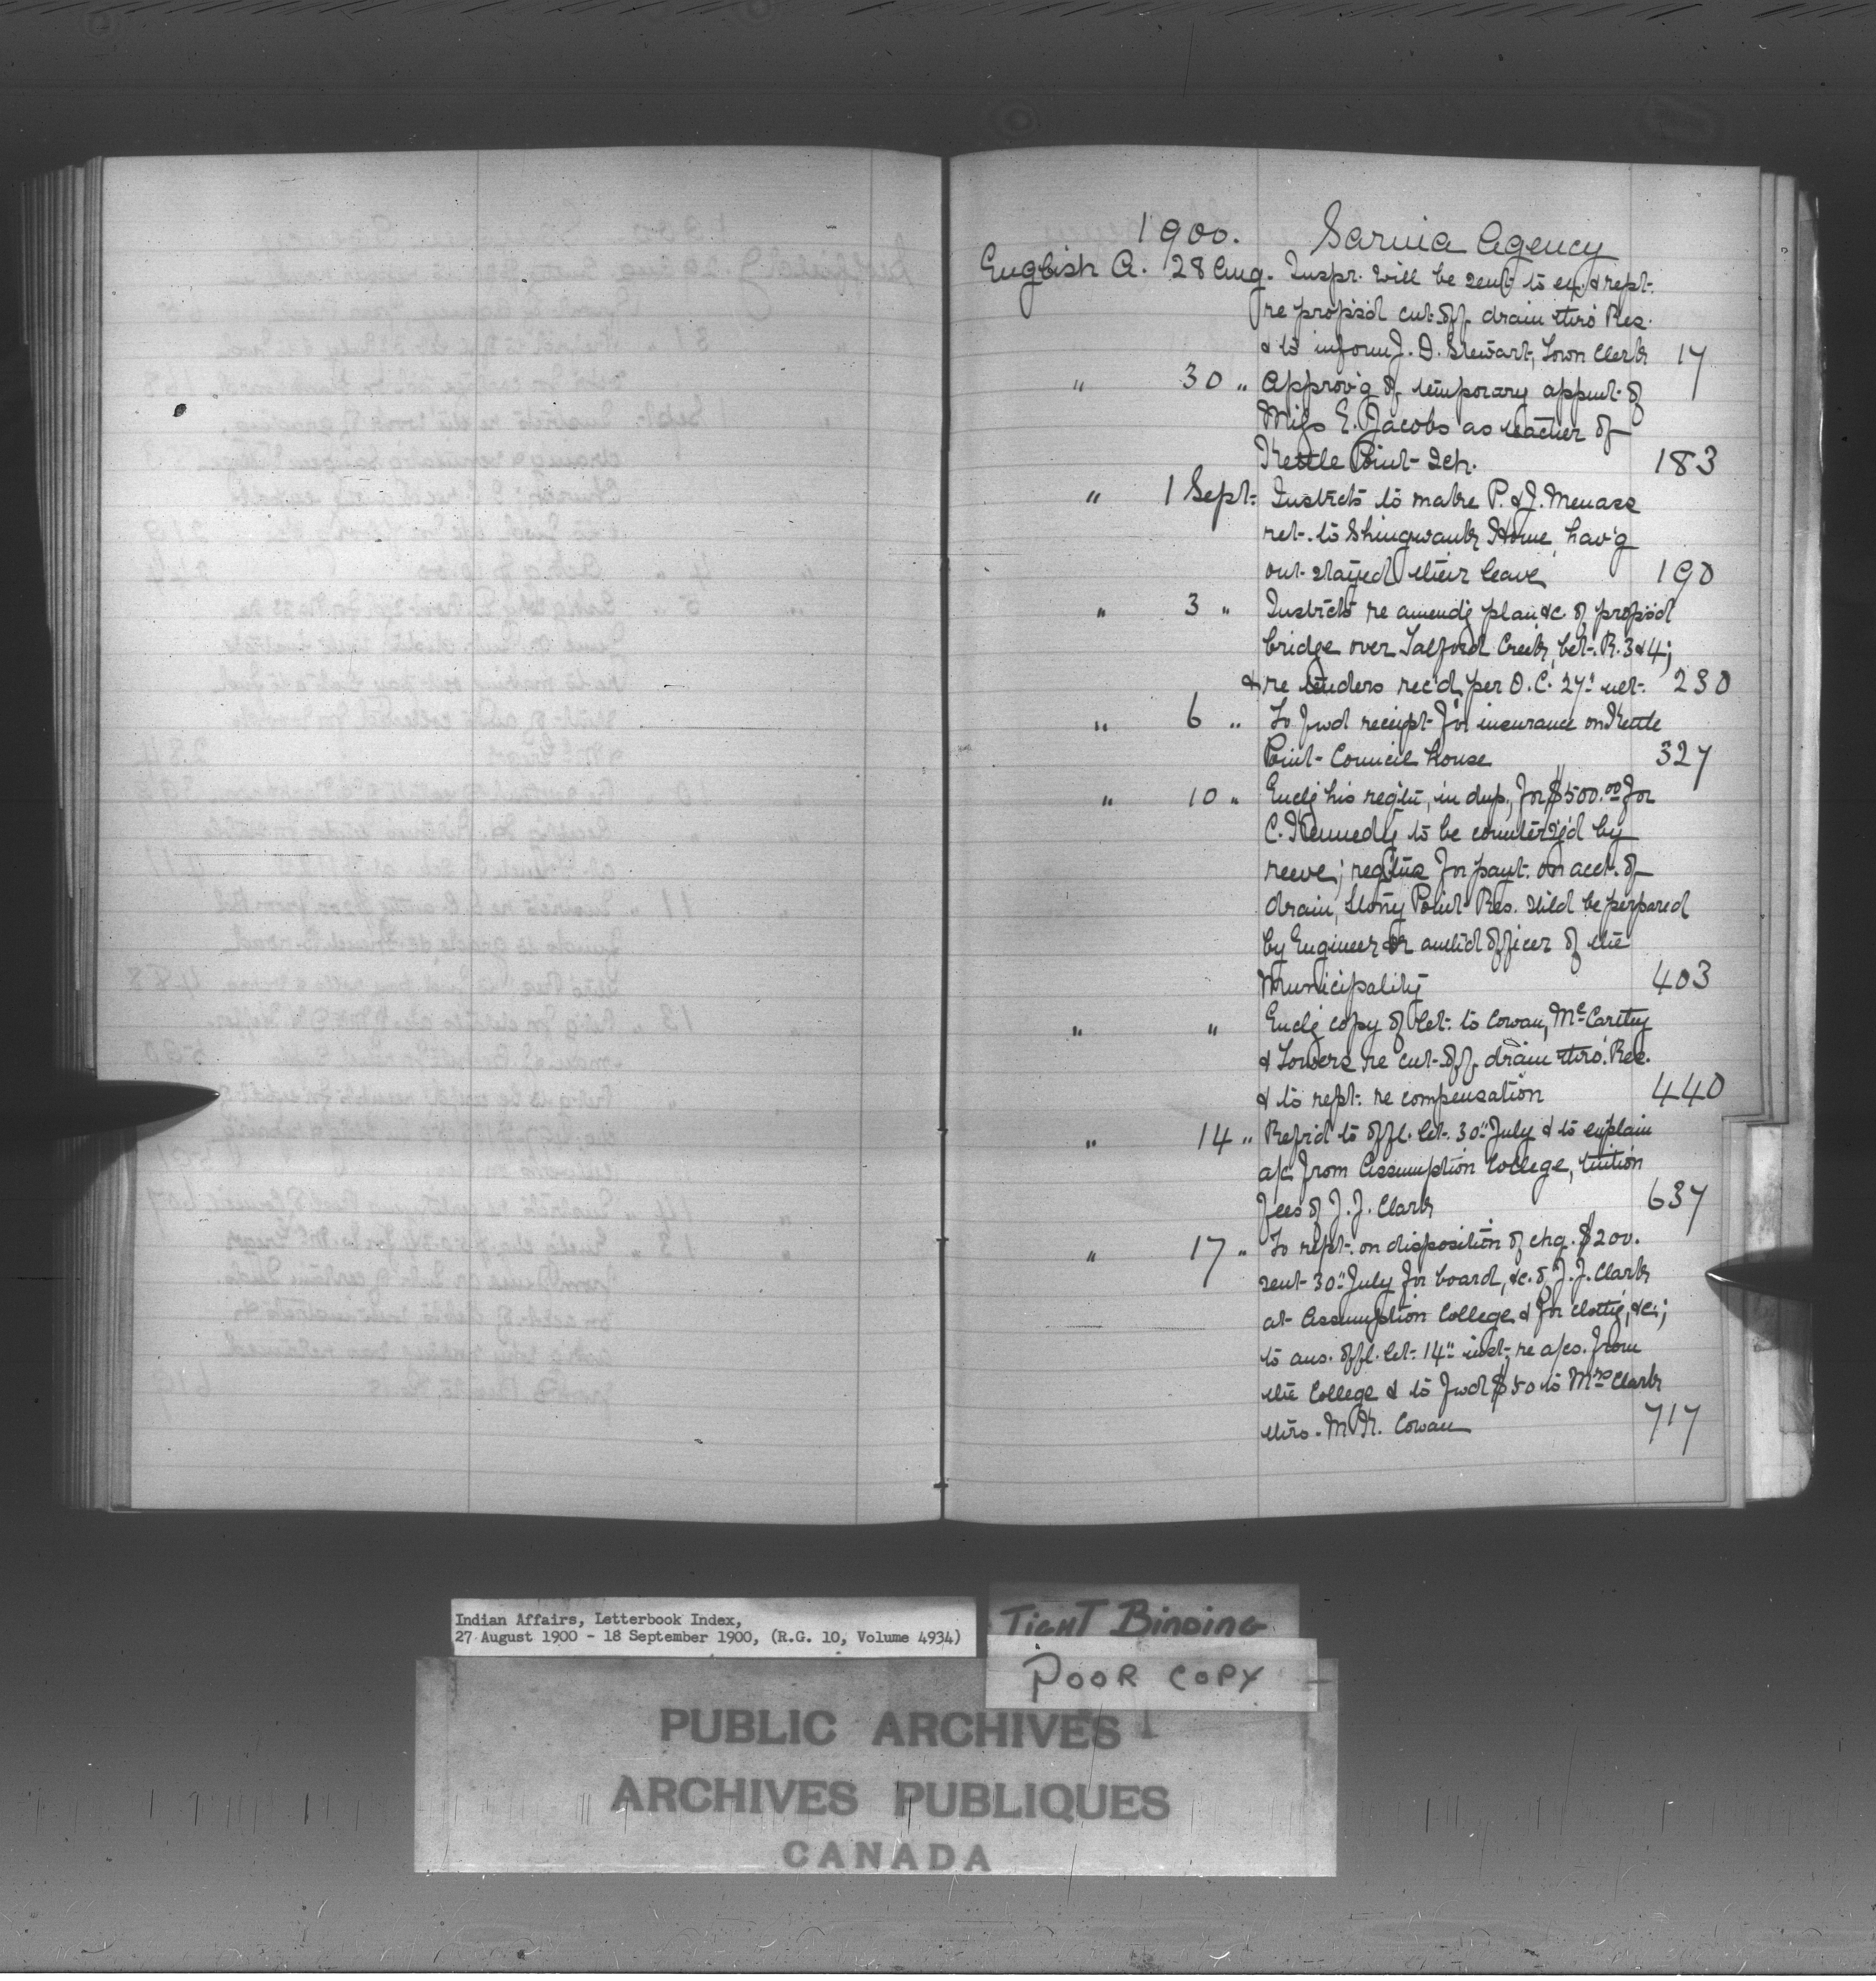 1900. Sarnia Agency
English A. 28 Aug. Inspr. will be sent to ex. & rept.
re propos'd cut-off drain thro' Res.
& to inform J. D. Stewart, Town Clerk 17
" 30 " Approv'g of temporary appmt. of
Miss E. Jacobs as teacher of
Kettle Point Sch. 183
" 1 Sept. Instrcts to make P. & J. Menass
ret. to Shingwauk Home, hav'g
out-stayed their leave 190
" 3 " Instrcts re amend'g plan &c of propos'd
bridge over Talford Creek, bet. R. 3 & 4;
& re tenders rec'd per O.C. 27" ult. 230
" 6 " To fwd receipt for insurance on Kettle
Point Council house 327
" 10 " Encl'g his reqtn, in dup., for $500.00 for
C. Kennedy to be countersg'd by
reeve; reqtns for payt. on acct. of
drain, Stony Point Res. shld be perpared
by Engineer or auth'd officer of the
Municipality 403
" " Encl'g copy of let. to Cowan, McCarthy
& Towers re cut-off drain thro' Res.
& to rept. re compensation 440
" 14 " Refr'd to offl. let. 30" July & to explain
a/c from Assumption College, tuition
fees of J. J. Clark 637
" 17 " To rept. on disposition of chq. $200.
sent 30" July for board, &c. of J. J. Clark
at Assumption College & for cloth'g, &c;
to ans. offl. let. 14" inst. re a/cs. from
the College & to fwd $50 to Mrs Clark
thro. Mr. Cowan 717
Indian Affairs, Letterbook Index,
27 August 1900 - 18 September 1900, (R.G. 10, Volume 4934)
TIGHT BINDING
POOR COPY
PUBLIC ARCHIVES
ARCHIVES PUBLIQUES
CANADA